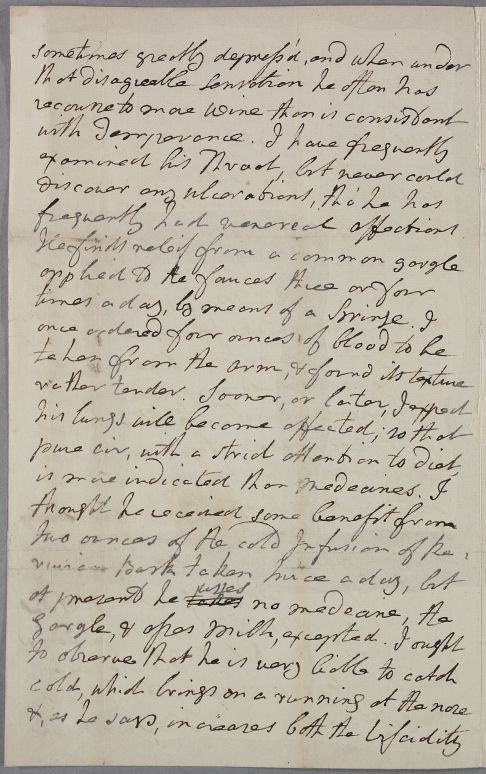 sometimes greatly depress'd, and when under
that disagreable sensation he often has
recourse to more wine than is consistant
with Temperance. I have frequently
examined his Throat, but never could
discover any ulcerations, tho' he has
frequently had venereal affections.
He finds releif from a common gargle
applied to the fauces three or four
times a day, by means of a Syringe. I
once ordered four ounces of blood to be
taken from the arm, & found its texture
rather tender. Sooner, or later, I expect
his lungs will become affected; so that
pure air, with a strict attention to diet,
is more indicated than medecines. I
thought he received some benefit from
two ounces of the cold Infusion of Pe-
ruvian Bark taken twice a day, but
at present he takes uses no medecine, the
gargle, & asses milk, excepted. I ought
to observe that he is very liable to catch
cold, which brings on a running at the nose
&, as he says, increases both the Viscidity